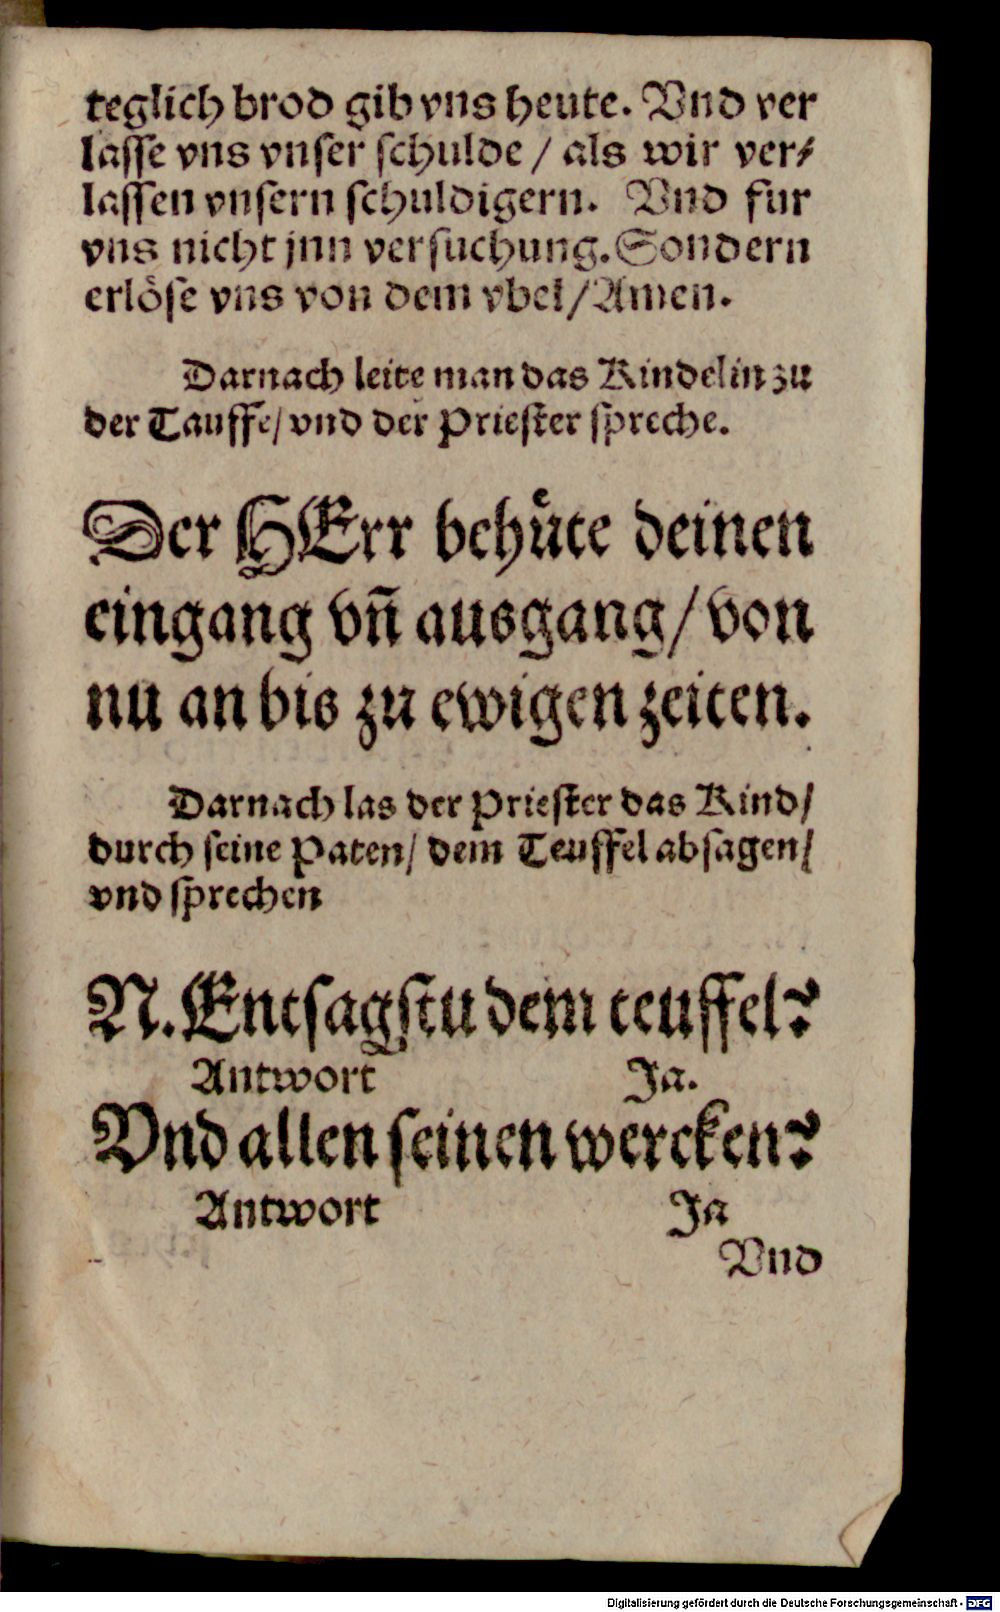 teglich brod gib vns heute. Vnd ver
lasse vns vnser schulde / als wir ver⸗
lassen vnsern schuldigern. Vnd fur
vns nicht jnn versuchung. Sondern
erlöse vns von dem vbel / Amen.
Darnach leite man das Kindelin zu
der Tauffe / vnd der Priester spreche.
Der HErr behuͤte deinen
eingang vñ ausgang / von
nu an bis zu ewigen zeiten.
Darnach las der Priester das Kind /
durch seine Paten / dem Teuffel absagen /
vnd sprechen
N. Entsagstu dem teuffel?
Antwort Ja.
Vnd allen seinen wercken?
Antwort Ja
Vnd
Digitalisierung gefördert durch die Deutsche Forschungsgemeinschaft - DFG